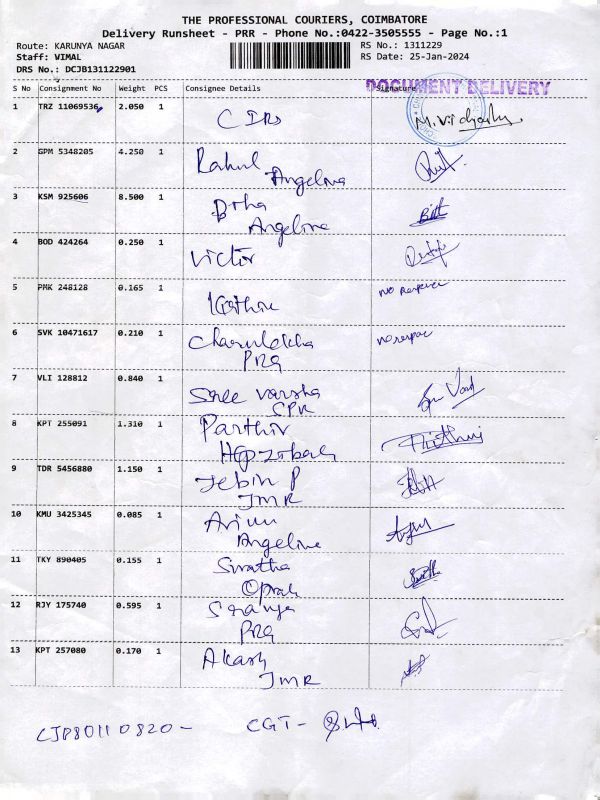 THE PROFESSIONAL COURIERS, COIMBATORE
Delivery Runsheet - PRR - Phone No.:0422-3505555 - Page No.:1
Route: KARUNYA NAGAR RS No.: 1311229
Staff: WIMAL RS Date: 25-Jan-2024
DRS No.: DCJB131122901
DOCUMENT DELIVERY
S No Consignment No Weight PCS Consignee Details Signature
1 TRZ 11069536 2.050 1
2 GPM 5348205 4.250 1 Rahul
Angelina
3 KSM 925606 8.500 1
Angeline
4 BOD 424264 0.250 1 Victor
5 PMK 248128 0.165 1 no response
6 SVK 10471617 0.210 1 Charulekha
PRG
7 VLI 128812 0.840 1 Sree varsha
SPR
8 KPT 255091 1.310 1 Parthiv
9 TDR 5456880 1.150 1 Jebin P
JMR
10 KMU 3425345 0.085 1 Arjun
Angeline
11 TKY 890405 0.155 1 Swatha
Oprah
12 RJY 175740 0.595 1 Saranya
PRG
13 KPT 257080 0.170 1 Akash
JMR
CJP80110820 - CGT -